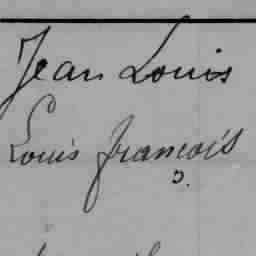 Jean Louis
Louis françois